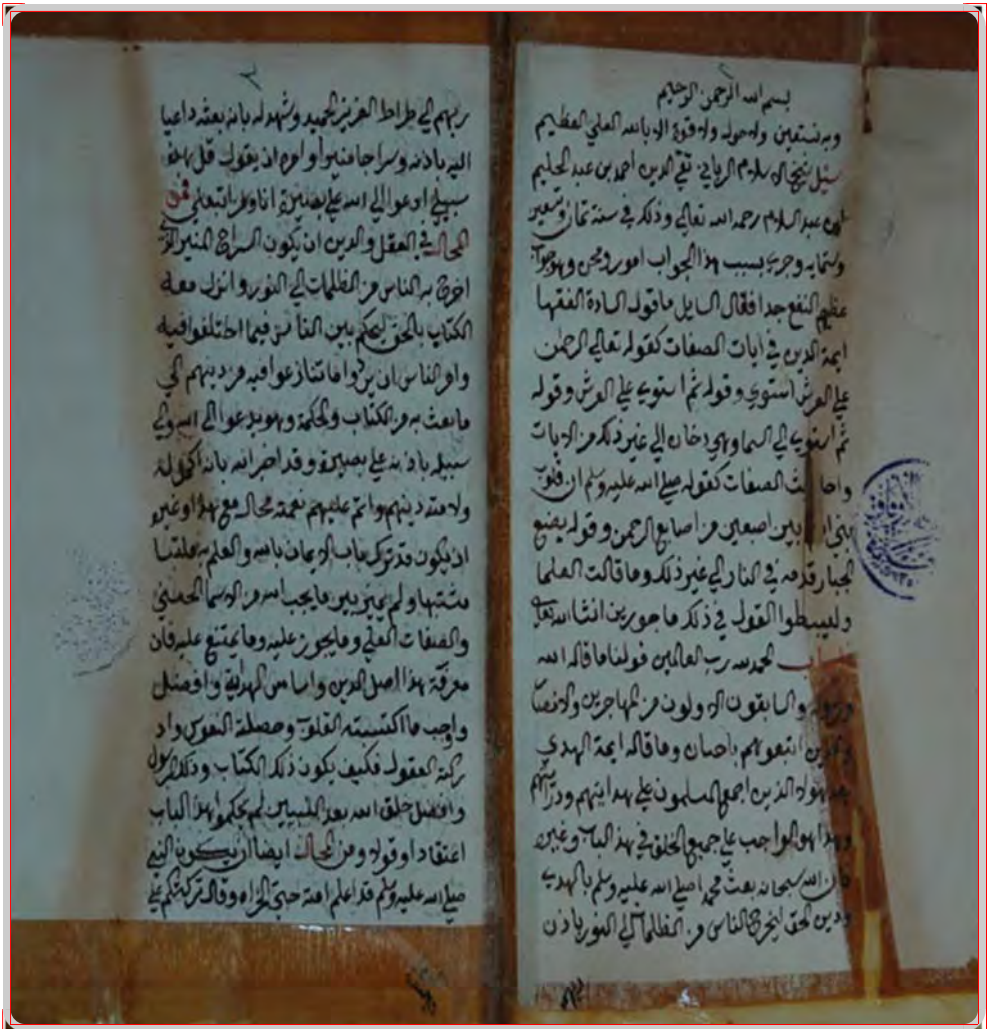 بسم الله الرحمن الرحيم
وبه نستعين ولا حول ولا قوة الا بالله العلي العظيم
سئل شيخ الاسلام الرباني تقي الدين احمد بن عبد الحليم
بن عبد السلام رحمه الله تعالى وذلك في سنة ثمان وتسعين
وستمايه وجرى بسبب هذا الجواب امور ومحن وهو جواب
عظيم النفع جدا فقال السايل ما قول السادة الفقها
ايمة الدين في ايات الصفات كقوله تعالى الرحمن
على العرش استوى وقوله ثم استوى على العرش وقوله
ثم استوى الى السما وهي دخان الى غير ذلك من الايات
واحاديث الصفات كقوله صلى الله عليه وسلم ان قلوب
بني ادم بين اصبعين من اصابع الرحمن وقوله يضع
الجبار قدمه في النار الى غير ذلك وما قالت العلما
وليبسطوا القول في ذلك ماجورين انشا الله تعالى
الجواب الحمد لله رب العالمين قولنا ما قاله الله
ورسوله والسابقون الاولون من المهاجرين والانصار
والذين اتبعوهم باحسان وما قاله ايمة الهدى
بعد هولاء الذين اجمع المسلمون على هدايتهم ودرايتهم
وهذا هو الواجب على جميع الخلق في هذا الباب وغيره
فان الله سبحانه بعث محمدا صلى الله عليه وسلم بالهدى
ودين الحق ليخرج الناس من الظلمات الى النور باذن
ربهم الى صراط العزيز الحميد وشهد له بانه بعثه داعيا
اليه باذنه وسراجا منيرا وامره ان يقول قل هذه
سبيلي ادعوا الى الله على بصيرة انا ومن اتبعني فمن
المحال في العقل والدين ان يكون السراج المنير الذي
اخرج به الناس من الظلمات الى النور وانزل معه
الكتاب بالحق ليحكم بين الناس فيما اختلفوا فيه
وامر الناس ان يردوا ما تنازعوا فيه من دينهم الى
ما بعث به من الكتاب والحكمة وهو يدعوا الى الله والى
سبيله باذنه على بصيرة وقد اخبر الله بانه اكمل له
ولامته دينهم واتم عليهم نعمته محال مع هذا وغيره
ان يكون قد ترك باب الايمان بالله والعلم به ملتبسا
مشتبها ولم يميز بين ما يجب لله من الاسما الحسنى
والصفات العلى وما يجوز عليه وما يمتنع عليه فان
معرفة هذا اصل الدين واساس الهداية وافضل
واوجب ما اكتسبته القلوب وحصلة النفوس واد
ركته العقول فكيف يكون ذلك الكتاب وذلك الرسول
وافضل خلق الله بعد النبيين لم يحكموا هذا الباب
اعتقادا وقولا ومن المحال ايضا ان يكون النبي
صلى الله عليه وسلم قد اعلم امته حتى الخراه وقال تركتكم على